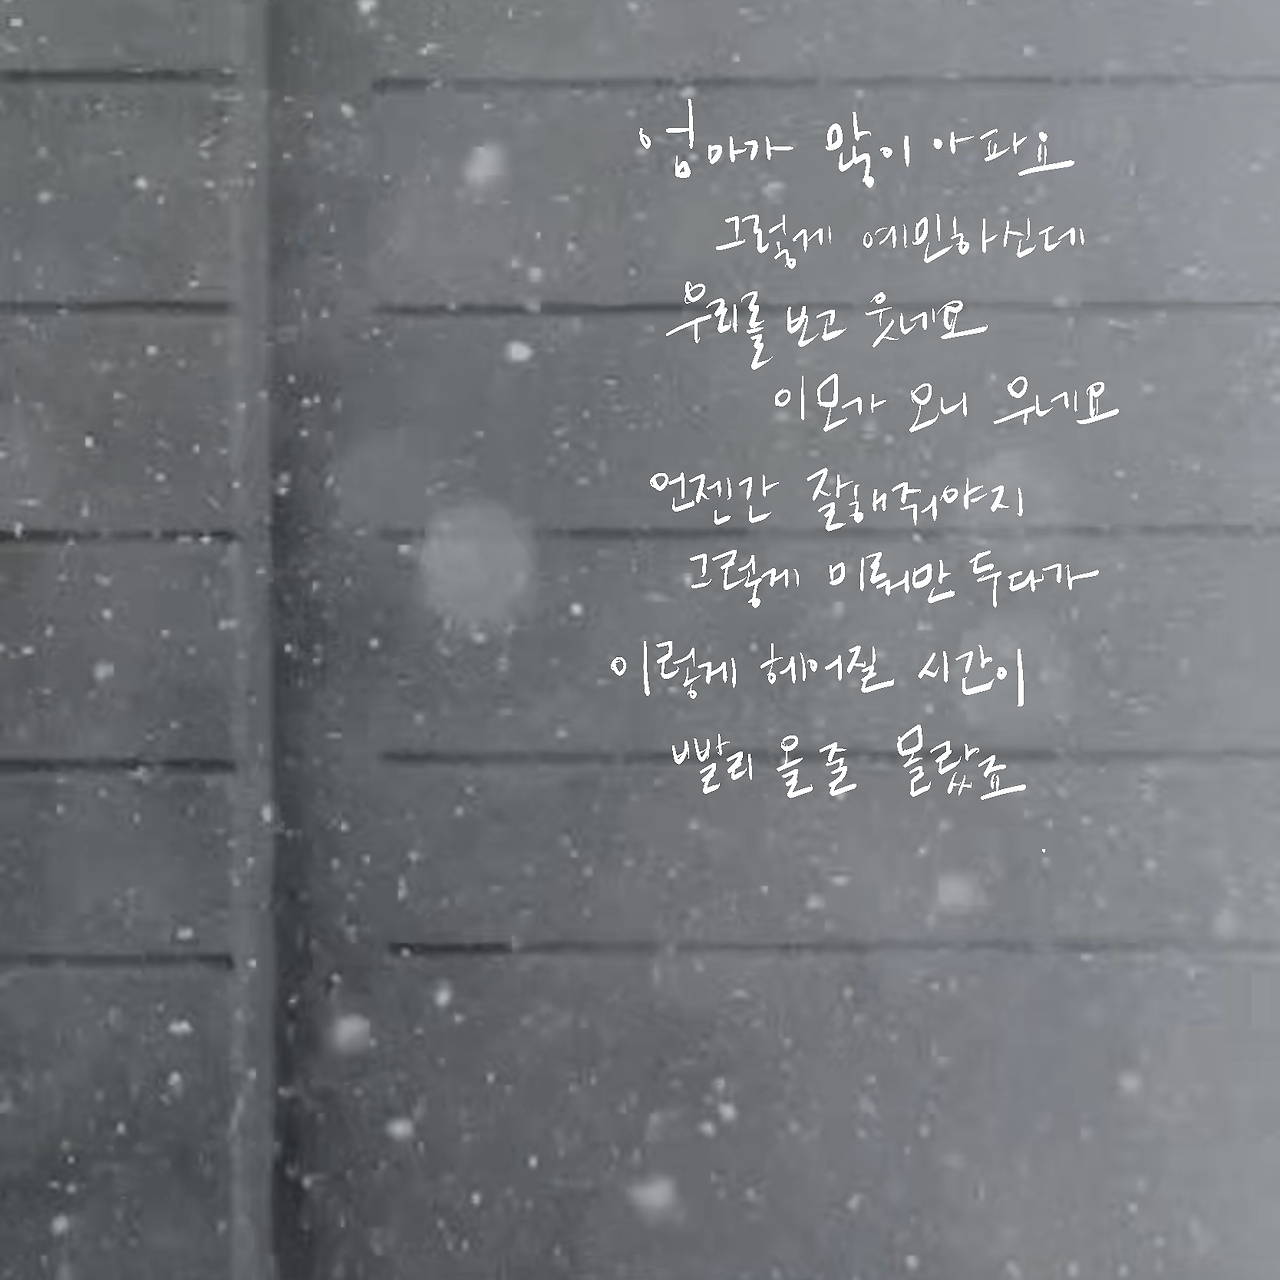 엄마가 많이 아파요
그렇게 예민하신데
우리를 보고 웃네요
이모가 오니 우네요
언젠간 잘해줘야지
그렇게 미뤄만 두다가
이렇게 헤어질 시간이
빨리 올 줄 몰랐죠